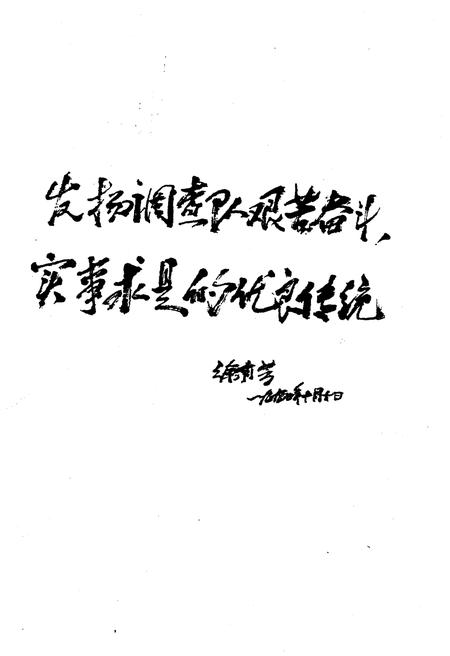 发扬调查队艰苦奋斗、
实事求是的优良传统
徐青
一九九〇年十月七日